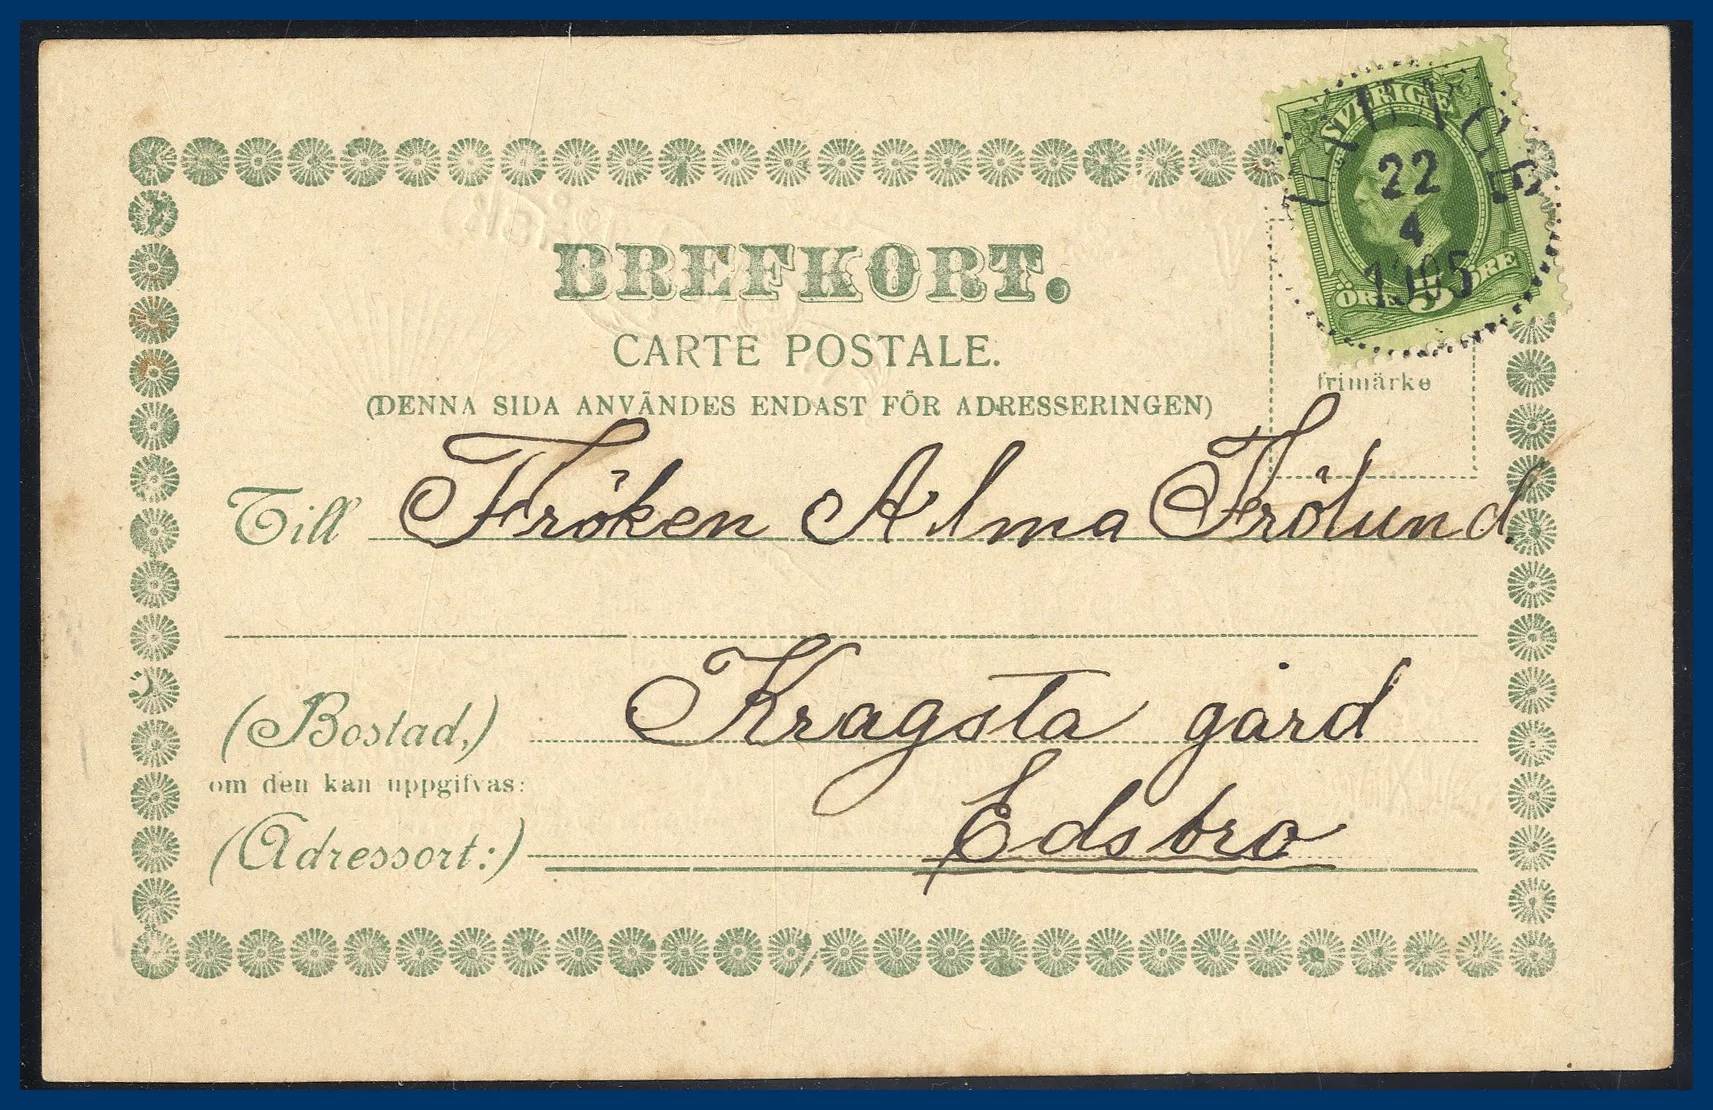 SVERIGE
22
4
1905
ÖRE 5 ÖRE
BREFKORT.
CARTE POSTALE.
(DENNA SIDA ANVÄNDES ENDAST FÖR ADRESSERINGEN)
frimärke
Till Fröken Alma Frölund
(Bostad,) Kragsta gård
om den kan uppgifvas:
(Adressort:) Edsbro